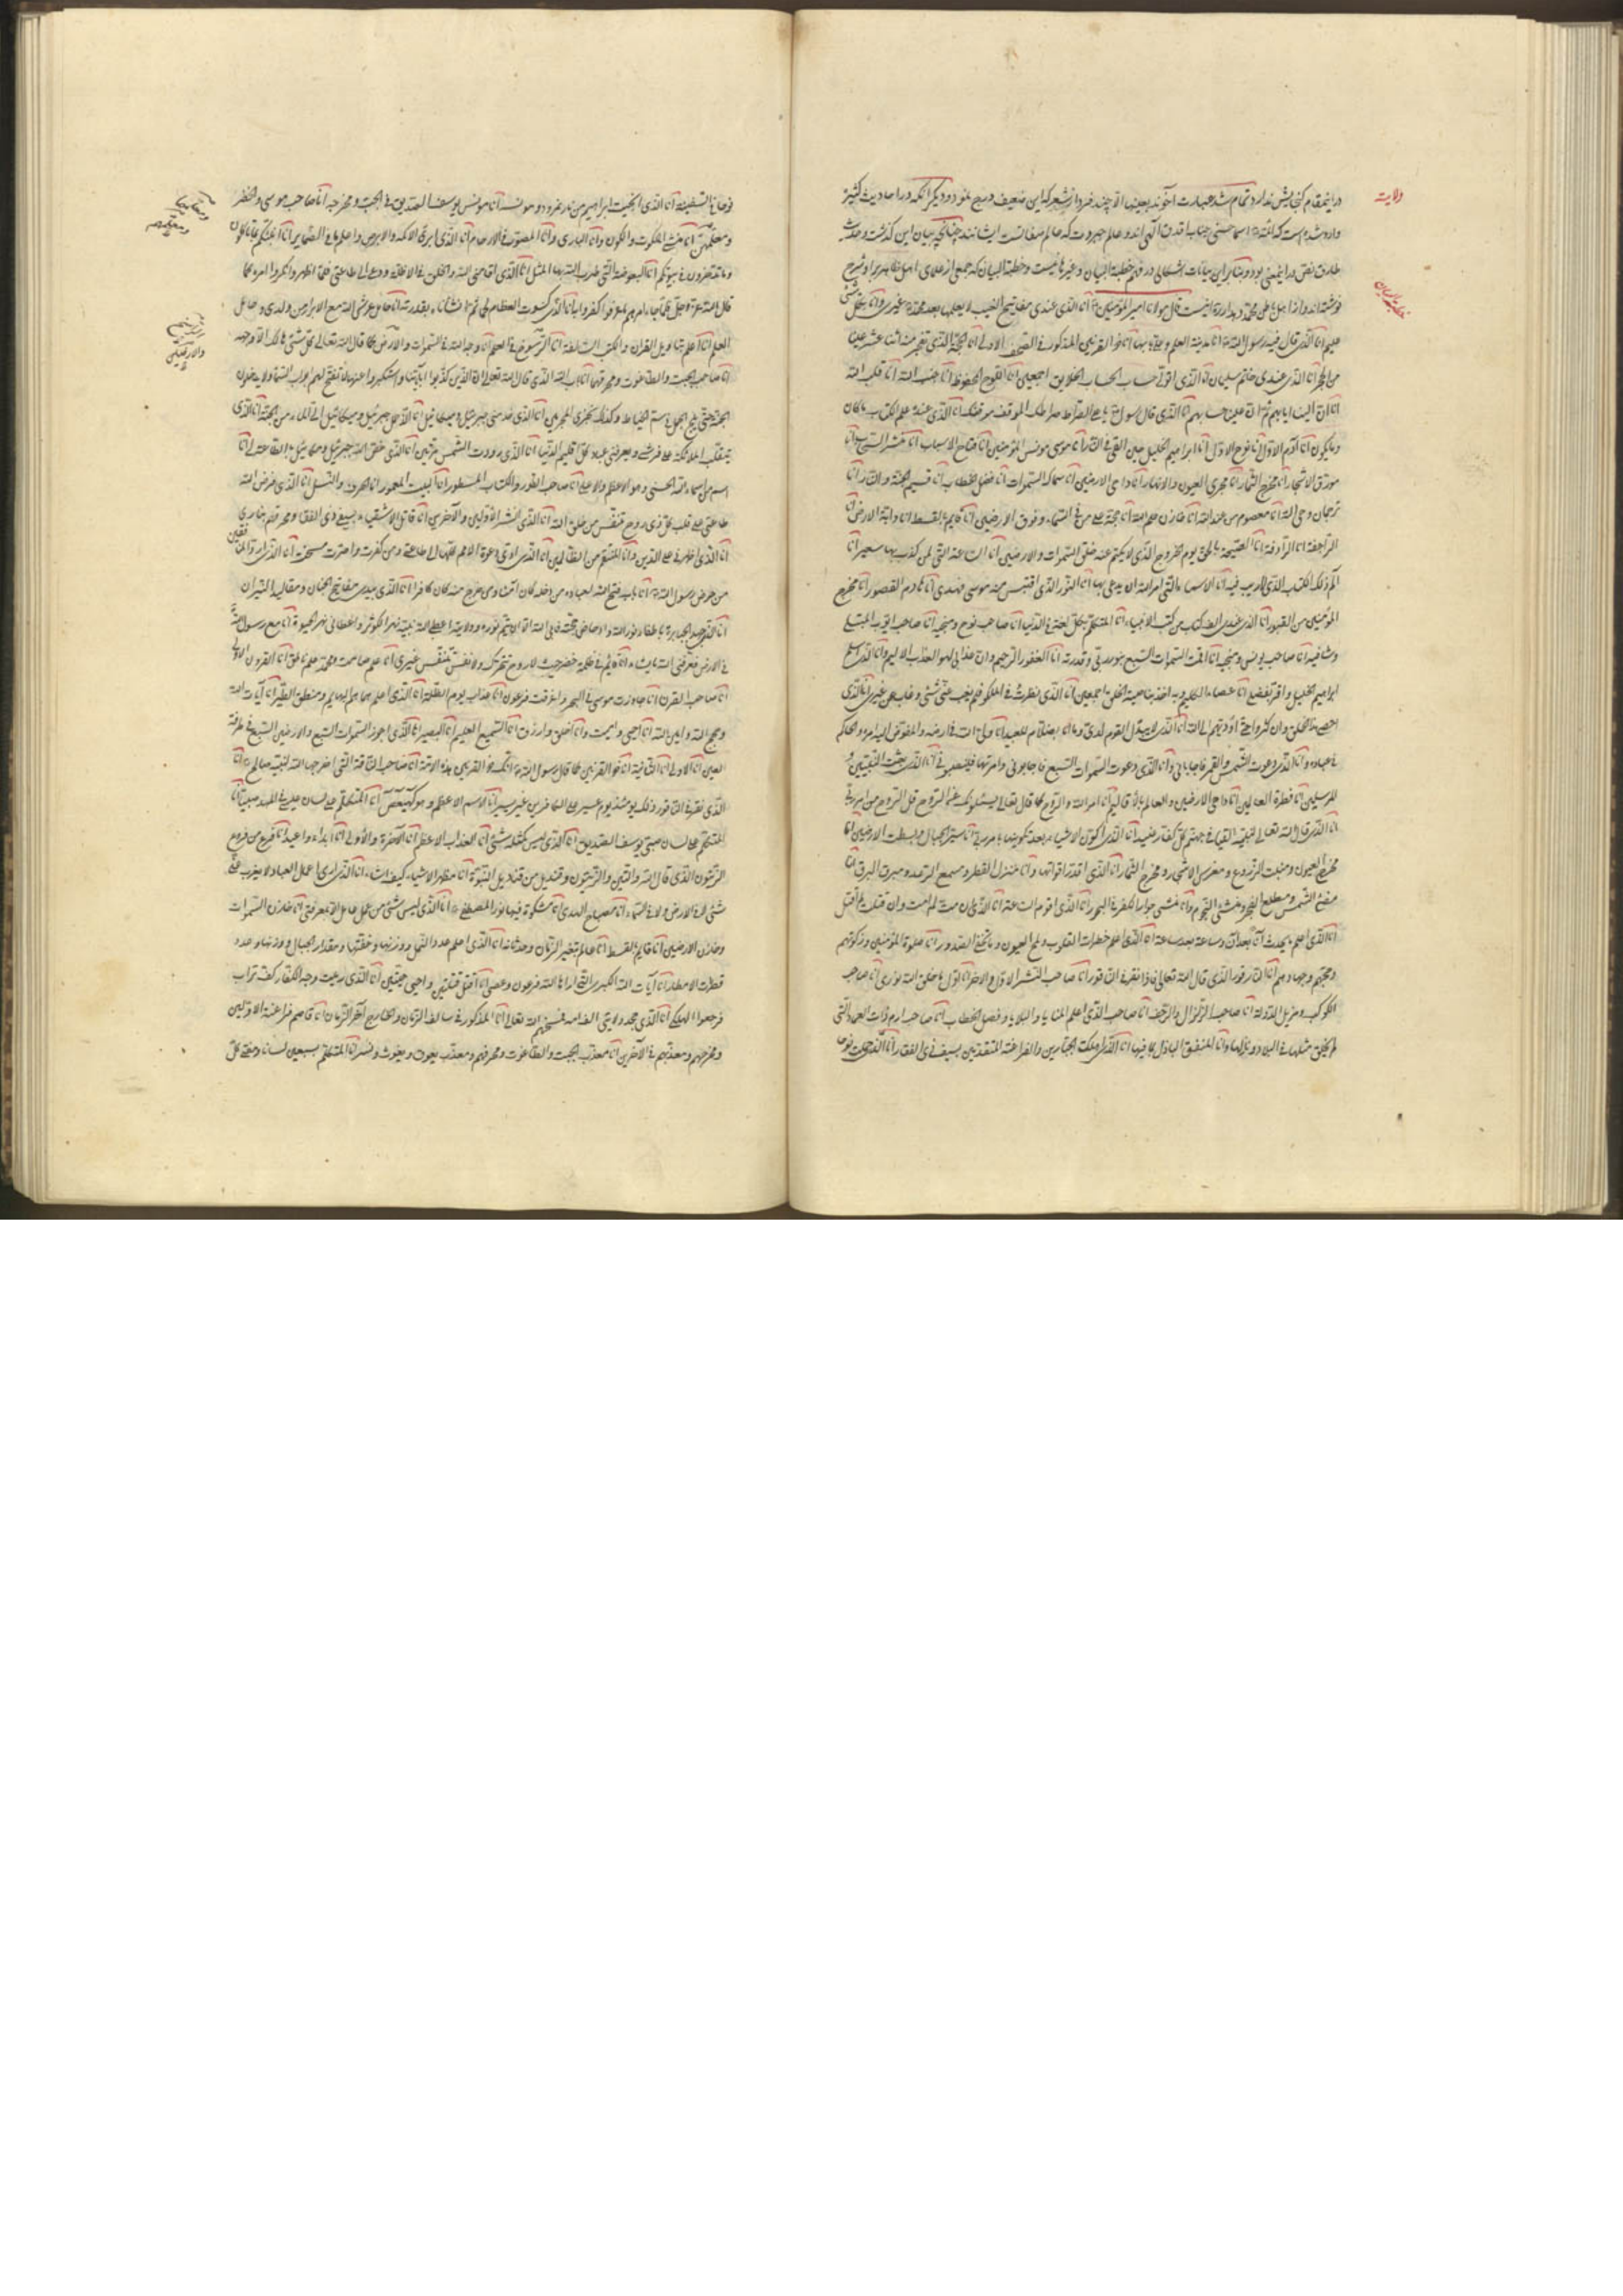 ولایت
در اینمقام گنجایش ندارد تمام شد عبارت آخوند بعینها الا چند فرد از شعر که این ضعیف درج نمود و دیگر آنکه در احادیث کثیره
وارد شده است که ائمه اسماء حسنی جناب اقدس آلهی اند و عالم جبروت که عالم صفاتست ایشانند چنانکه بیان این گذشت و حدیث
طارق نص در اینمعنی بود و بنابر این بیانات اشکالی در فهم خطبة البیان و غیرها نیست و خطبة البیان که جمعی از علمای اهل ظاهر بر او شرح
خطبة البیان
نوشته اند قال مولانا امیر المؤمنین انا الذی عندی مفاتیح الغیب لا یعلمها بعد محمد غیری وانا بکل شئ
علیم انا الذی قال فیه رسول الله انا مدینة العلم وعلی بابها انا ذو القرنین المذکور فی الصحف الاولی انا الحجر الذی تفجر منه اثنتا عشرة عینا
انا الذی عندی خاتم سلیمان انا الذی اتولی حساب الخلایق اجمعین انا اللوح المحفوظ انا جنب الله انا قلب الله
انا ان الینا ایابهم ثم ان علینا حسابهم انا الذی قال رسول الله یا علی الصراط صراطک والموقف موقفک انا الذی عنده علم الکتاب ما کان
وما یکون انا آدم الاول انا نوح الاول انا ابراهیم الخلیل حین القی فی النار انا موسی مونس المؤمنین انا فتاح الاسباب انا منشئ السحاب انا
مورق الاشجار انا مخرج الثمار انا مجری العیون والانهار انا داحی الارضین انا سماک السموات انا فصل الخطاب انا قسیم الجنة والنار انا
ترجمان وحی الله انا معصوم من عند الله انا خازن علم الله انا حجة الله علی من فی السماء وفوق الارضین انا قایم بالقسط انا دابة الارض انا
الراجفة انا الرادفة انا الصیحة بالحق یوم الخروج الذی لا یکتم عنه خلق السموات والارضین انا الساعة التی لمن کذب بها سعیرا انا
ذلک الکتاب الذی لا ریب فیه انا الاسماء الحسنی التی امر الله ان یدعی بها انا النور الذی اقتبس منه موسی فهدی انا هادم القصور انا مخرج
المؤمنین من القبور انا الذی عندی الف کتاب من کتب الانبیاء انا المتکلم بکل لغة فی الدنیا انا صاحب نوح ومنجیه انا صاحب ایوب المبتلی
وشافیه انا صاحب یونس ومنجیه انا اقمت السموات السبع بنور ربی وقدرته انا الغفور الرحیم وان عذابی لهو العذاب الالیم وانا الذی اسلم
ابراهیم الخلیل واقر بفضلی انا عصاء الکلیم وبه آخذ بناصیة الخلق اجمعین انا الذی نظرت فی الملکوت فلم یغب عنی شئ وغاب من غیری انا الذی
احصی هذا الخلق وان کثروا حتی اؤدیهم الی الله انا الذی لا یبدل القول لدی وما انا بظلام للعبید انا ولی الله فی ارضه والمفوض الیه امره والحاکم
فی عباده وانا الذی دعوت الشمس والقمر فاجابانی وانا الذی دعوت السموات السبع فاجابونی
المرسلین انا فطرة العالمین انا داحی الارضین والعالم بالاقالیم انا امر الله والروح کما قال تعالی یسئلونک عن الروح قل الروح من امر ربی
انا الذی قال الله تعالی لنبیه القیا فی جهنم کل کفار عنید انا الذی اکون الاشیاء بعد تکوینها بامر ربی انا مسیر الجبال وباسط الارضین انا
مخرج العیون ومنبت الزروع ومغرس الاشجار ومخرج الثمار انا الذی اقدر اقواتها وانا منزل القطر ومسمع الرعد ومبرق البرق انا
مضئ الشمس ومطلع الفجر ومنشئ النجوم وانا منشئ جوار الفلک فی البحور انا الذی اقوم الساعة انا الذی ان مت لم امت وان قتلت لم اقتل
انا الذی اعلم ما یحدث آنا بعد آن وساعة بعد ساعة انا الذی اعلم خطرات القلوب ولمح العیون وما یخفی الصدور انا صلوة المؤمنین وزکوتهم
وحجهم وجهادهم انا الناقور الذی قال الله تعالی فاذا نقر فی الناقور انا صاحب النشر الاول والآخر انا اول ما خلق الله نوری انا صاحب
الکواکب ومزیل الدولة انا صاحب الزلزال والرجف انا صاحب الذی اعلم المنایا والبلایا وفصل الخطاب انا صاحب ارم ذات العماد التی
لم یخلق مثلها فی البلاد ونازلها وانا المنفق الباذل بما فیها انا الذی اهلکت الجبارین والفراعنة المتقدمین بسیفی ذی الفقار انا الذی حملت نوحا
نوحا فی السفینة انا الذی انجیت ابراهیم من نار نمرود ومونسه انا مونس یوسف الصدیق فی الجب ومخرجه انا صاحب موسی والخضر
ومعلمهما انا منشئ الملکوت والکون وانا الباری وانا المصور فی الارحام انا الذی ابرئ الاکمه والابرص واعلم ما فی الضمایر انا انبئکم بما تاکلون
وما تدخرون فی بیوتکم انا البعوضة التی ضرب الله بها المثل انا الذی اقامنی الله والخلق فی الاظلة ودعی الی طاعتی فلما ظهرت انکروا امره کما
قال الله عز وجل فلما جاءهم ما عرفوا کفروا به انا الذی کسوت العظام لحما ثم انشأناه بقدرته انا حامل عرش الله مع الابرار من ولدی وحامل
العلم انا اعلم بتاویل القران والکتب السالفة انا الرسوخ فی العلم انا وجه الله فی السموات والارض کما قال الله تعالی کل شئ هالک الا وجهه
انا صاحب الجبت والطاغوت ومحرقهما انا باب الله الذی قال الله تعالی ان الذین کذبوا بآیاتنا واستکبروا عنها لا تفتح لهم ابواب السماء ولا یدخلون
الجنة حتی یلج الجمل فی سم الخیاط وکذلک نجزی المجرمین انا الذی خدمنی جبرئیل ومیکائیل
یتقلب الملائکة علی فرشی ویعرفنی عباد کل اقلیم الدنیا انا الذی ردت الشمس مرتین انا الذی خلق الله جبرئیل ومیکائیل بالطاعة لی انا
اسم من اسماء الله الحسنی وهو الاعظم والاعلی انا صاحب الطور والکتاب المسطور انا البیت المعمور انا الحرث والنسل انا الذی فرض الله
طاعتی علی قلب کل ذی روح متنفس من خلق الله انا الذی انشر الاولین والآخرین انا قاتل الاشقیاء بسیفی ذی الفقار ومحرقهم بناری
انا الذی اظهرنی الله علی الدین وانا المنتقم من الظالمین انا الذی الی دعوة الامم کلها الی طاعتی ومن کفرت واصرت مسخت انا الذی ارد المنافقین
من حوض رسول الله انا باب فتح الله لعباده من دخله کان آمنا ومن خرج منه کان کافرا انا الذی بیدی مفاتیح الجنان ومقالید النیران
انا الذی جهد الجبابرة باطفاء نور الله وادحاض حجته فابی الله الا ان یتم نوره وولایته اعطی الله نبیه نهر الکوثر واعطانی نهر الحیوة انا مع رسول الله
فی الارض فعرفنی الله ما یشاء انا قایم فی ظلمة خضر حیث لا روح تتحرک ولا نفس یتنفس غیری انا علم صامت ومحمد علم ناطق انا القرون الاولی
انا صاحب القرن انا جاوزت موسی فی البحر واغرقت فرعون انا عذاب یوم الظلة انا الذی اعلم هماهم البهایم ومنطق الطیر انا آیات الله
وحجج الله وامین الله انا احیی وامیت وانا اخلق وارزق انا السمیع العلیم انا البصیر انا الذی اجوز السموات السبع والارضین السبع فی طرفة
العین انا الاولی انا الثانیة انا ذو القرنین کما قال رسول الله انک ذو القرنین هذه الامة انا صاحب الناقة التی اخرجها الله لنبیه صالح انا
الذی نقر فی الناقور فذلک یومئذ یوم عسیر علی الکافرین غیر یسیر انا الاسم الاعظم وهو کهیعص انا المتکلم علی لسان عیسی فی المهد صبیا انا
المتکلم علی لسان صبی یوسف الصدیق انا الذی لیس کمثله شئ انا العذاب الاعظم انا الآخرة والاولی انا ابداء واعید انا فرع من فروع
الزیتون الذی قال الله والتین والزیتون وقندیل من قنادیل النبوة انا مظهر الاشیاء کیف اشاء انا الذی اری اعمال العباد لا یعزب عنی
شئ فی الارض ولا فی السماء انا مصباح الهدی انا مشکوة فیها نور المصطفی انا الذی لیس شئ من عمل عامل الا بمعرفتی انا خازن السموات
وخازن الارضین انا قایم بالقسط انا عالم بتغیر الزمان وحدثانه انا الذی اعلم عدد النمل ووزنها وخفتها ومقدار الجبال ووزنها وعدد
قطرات الامطار انا آیات الله الکبری التی اراها الله فرعون وعصی انا اقتل قتلتین واحیی حیتین انا الذی رمیت وجه الکفار کف تراب
فرجعوا الهلکی انا الذی جحد ولایتی الف امة فمسخهم الله تعالی انا المذکور فی سالف الزمان والخارج آخر الزمان انا قاصم فراعنة الاولین
ومخرجهم ومعذبهم فی الآخرین انا معذب الجبت والطاغوت ومحرقهم ومعذب یعوق ویغوث ونسرا انا المتکلم بسبعین لسانا ومفتی کل